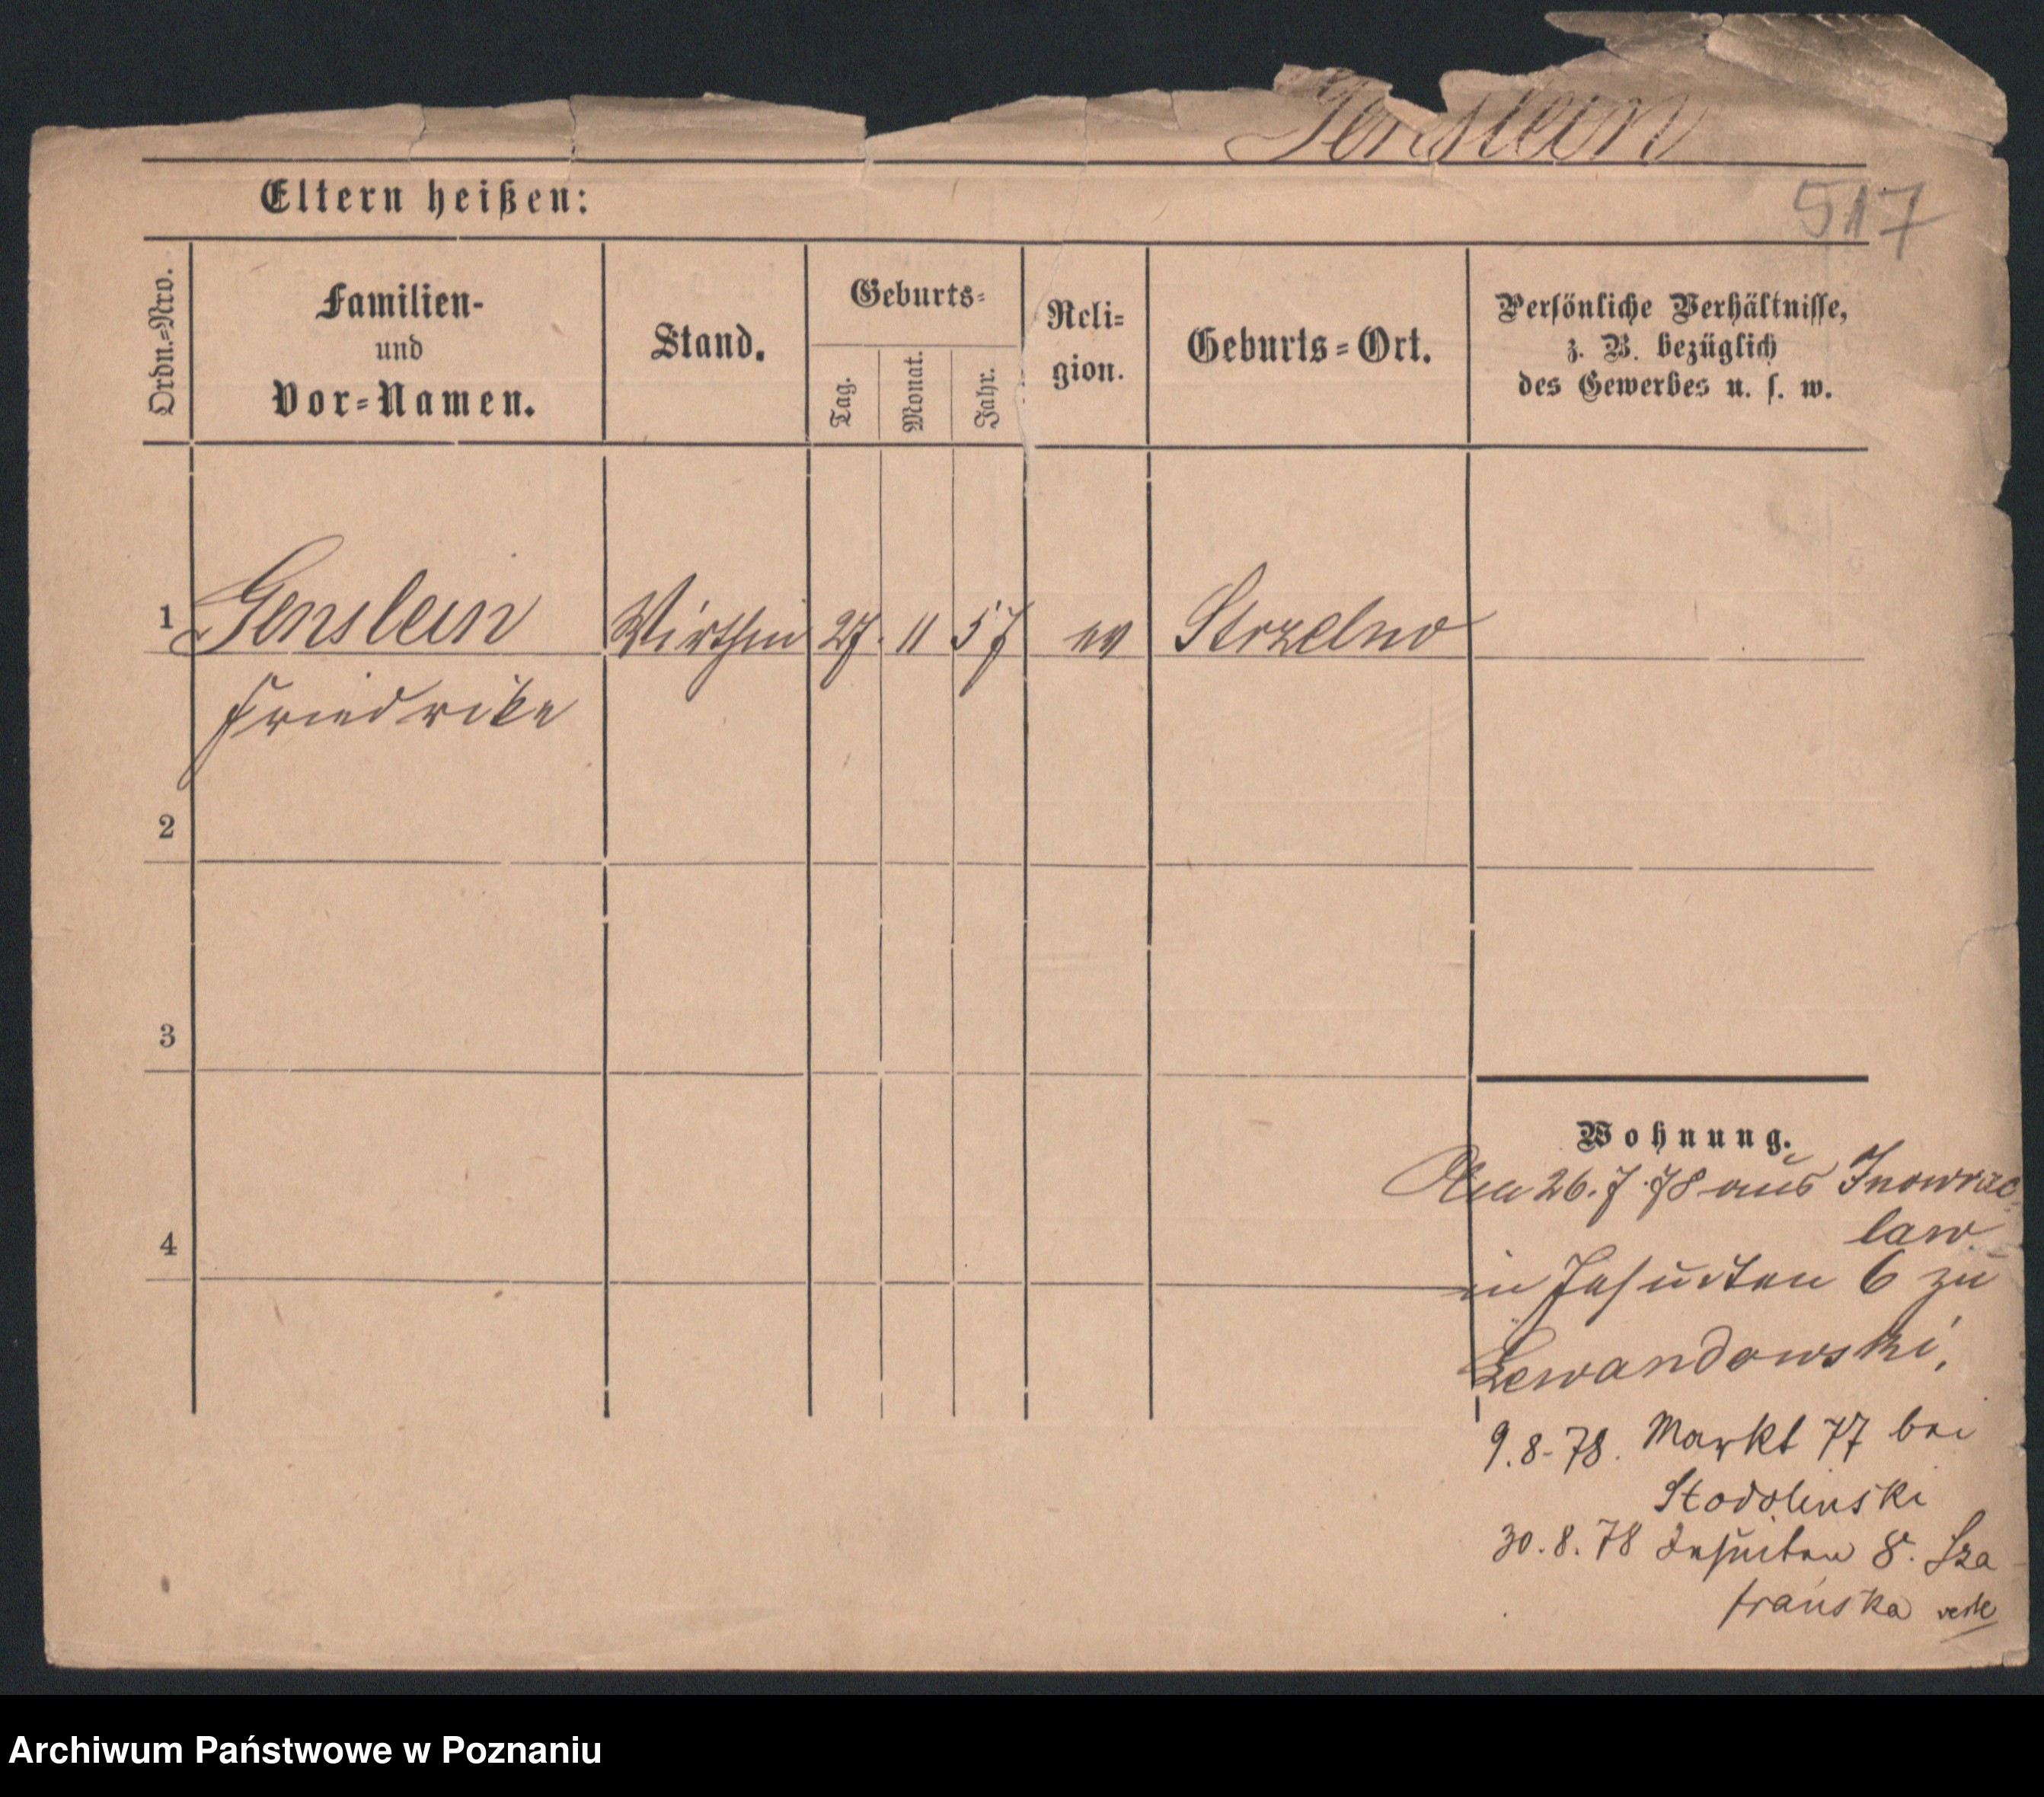 Genstein
517
Eltern heißen:
Ordn.=Nro.
Familien-
und
Vor=Namen.
Stand.
Geburts=
Tag.
Monat.
Jahr.
Reli=
gion.
Geburts=Ort.
Persönliche Verhältnisse,
z. B. bezüglich
des Gewerbes u. s. w.
1 Genstein Wirthin 27. 11 57 ev Strzelno
Friedrike
2
3
4
Wohnung.
26. 7. 78 aus Inowrac
law
in Jesuiten 6 zu
Lewandowski,
9.8-78. Markt 77 bei
Stodolinski
30.8.78 Jesuiten 8. Sza
frańska
Archiwum Państwowe w Poznaniu